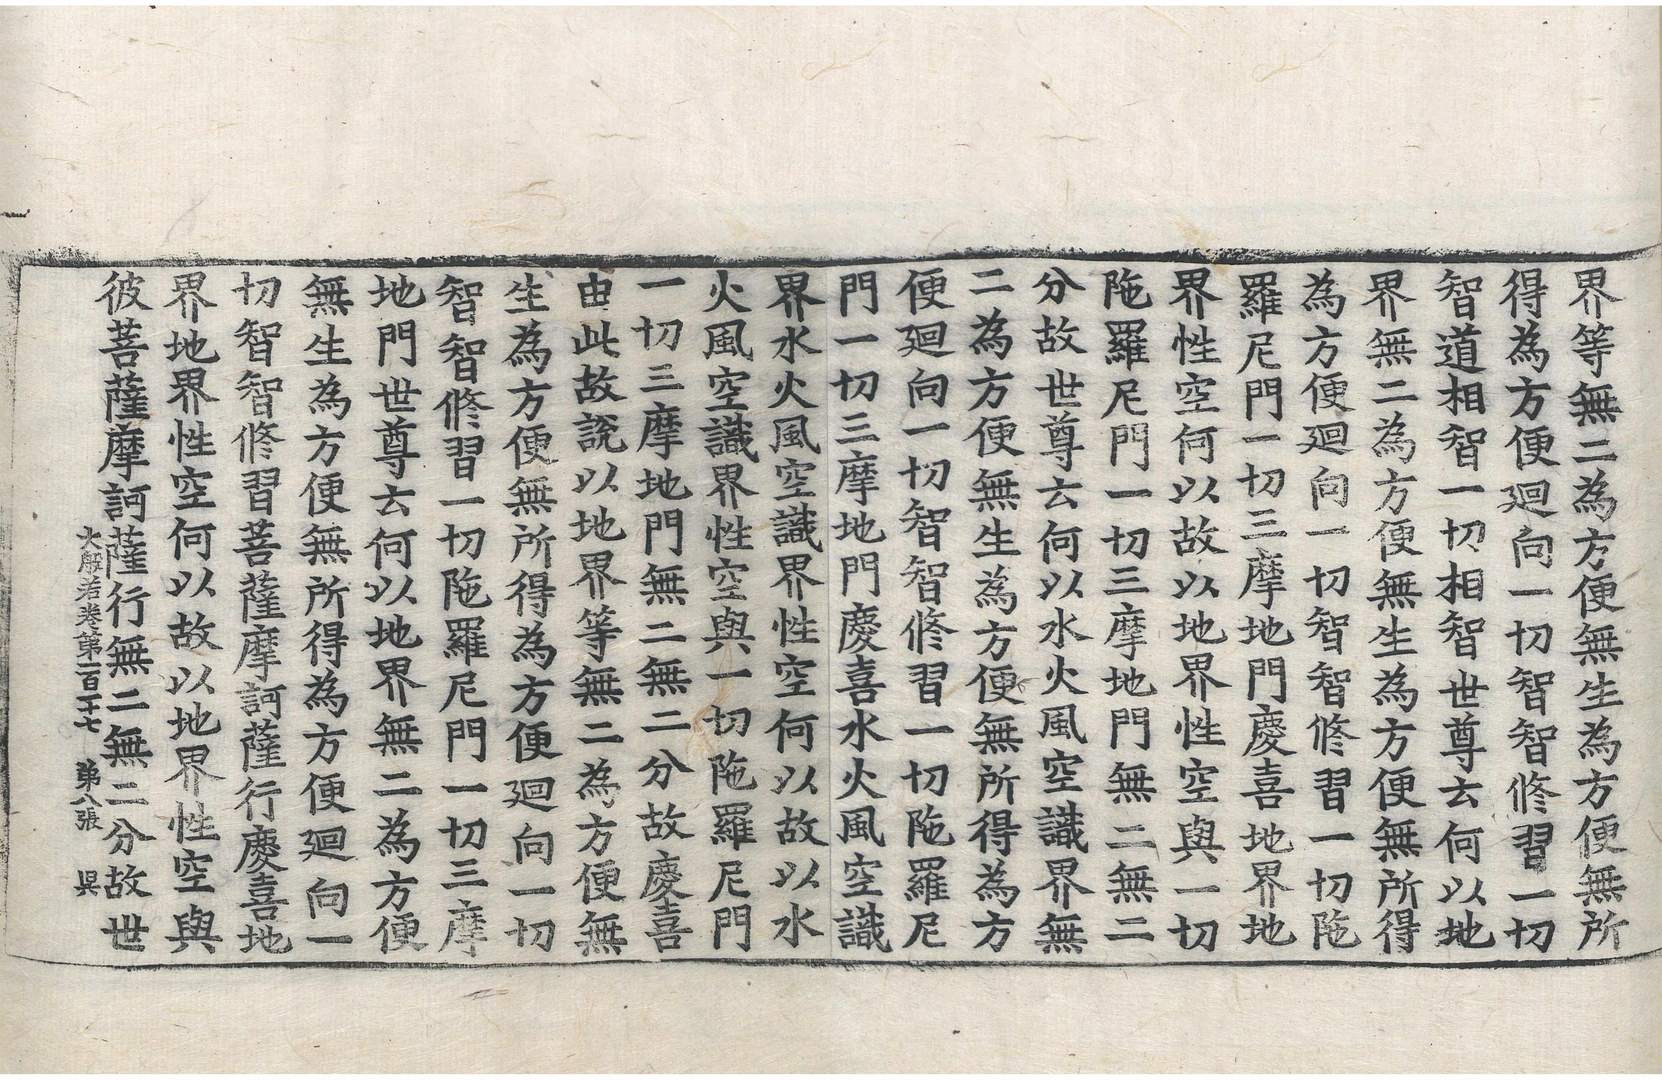 界等無二為方便無生為方便無所
得為方便迴向一切智智修習一切
智道相智一切相智世尊云何以地
界無二為方便無生為方便無所得
為方便迴向一切智智修習一切陁
羅尼門一切三摩地門慶喜地界地
界性空何以故以地界性空與一切
陁羅尼門一切三摩地門無二無二
分故世尊云何以水火風空識界無
二為方便無生為方便無所得為方
便迴向一切智智修習一切陁羅尼
門一切三摩地門慶喜水火風空識
界水火風空識界性空何以故以水
火風空識界性空與一切陁羅尼門
一切三摩地門無二無二分故慶喜
由此故說以地界等無二為方便無
生為方便無所得為方便迴向一切
智智修習一切陁羅尼門一切三摩
地門世尊云何以地界無二為方便
無生為方便無所得為方便迴向一
切智智修習菩薩摩訶薩行慶喜地
界地界性空何以故以地界性空與
彼菩薩摩訶薩行無二無二分故世
大般若卷第一百一十七 第八張 昃